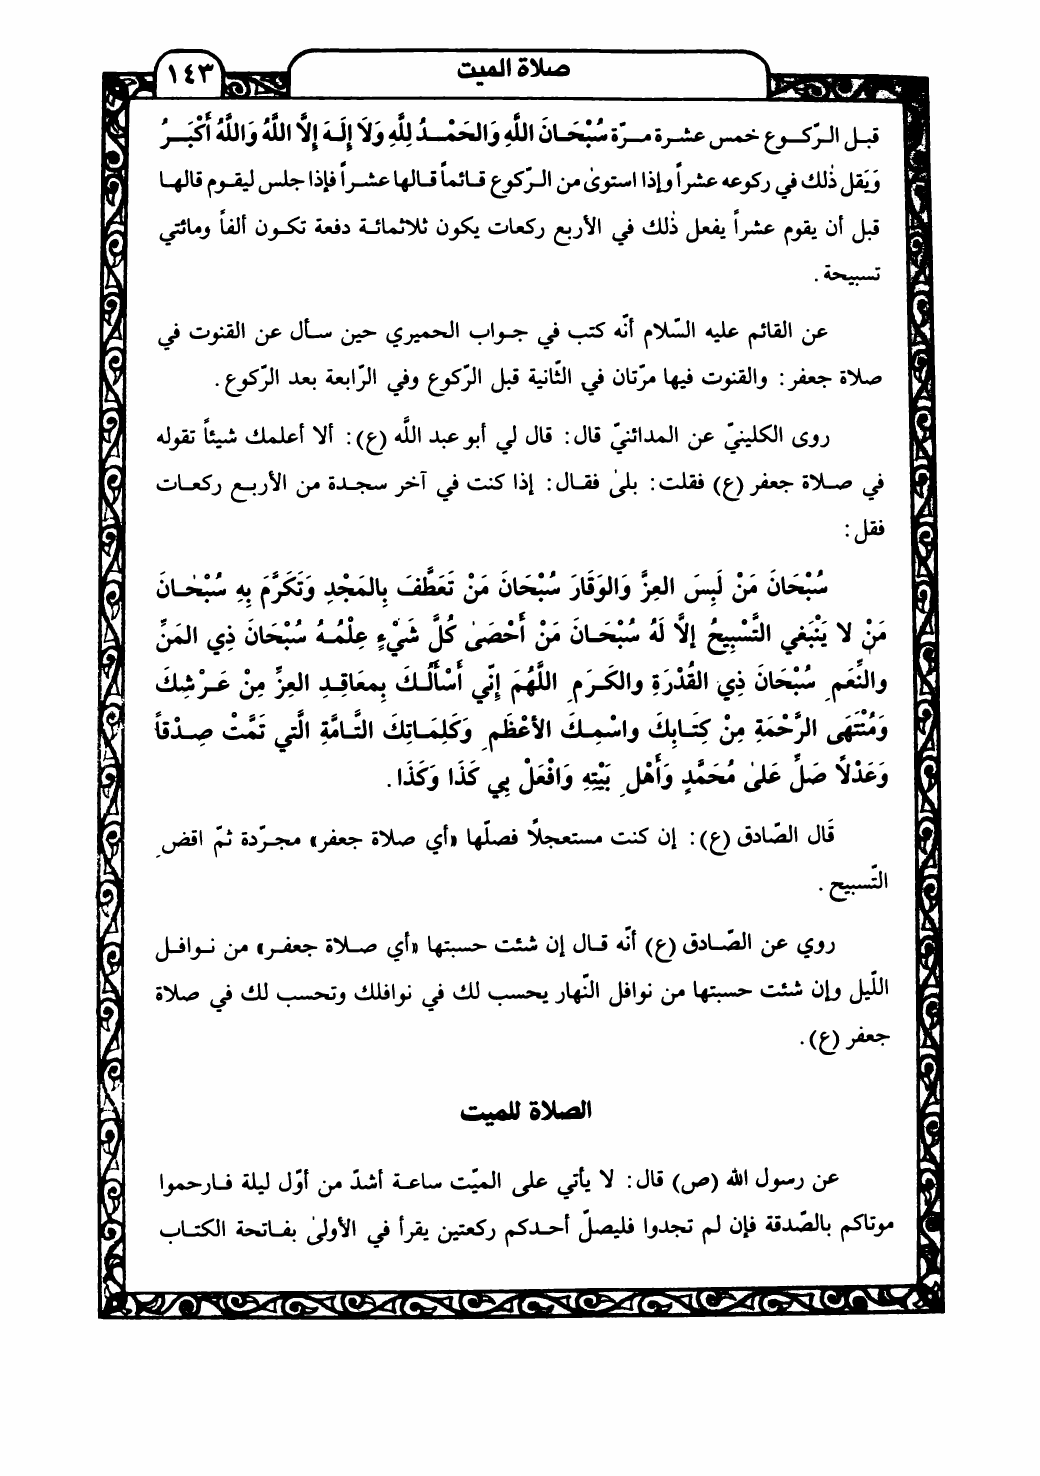 صلاة الميت
١٤٣
قبل الرّكوع خمس عشرة مرّة سُبْحَانَ اللَّهِ وَالحَمْدُ لِلَّهِ وَلَا إِلَهَ إِلَّا اللَّهُ وَاللَّهُ أَكْبَرُ
وَيَقل ذٰلك في ركوعه عشراً وإذا استوىٰ من الرّكوع قائماً قالها عشراً فإذا جلس ليقوم قالها
قبل أن يقوم عشراً يفعل ذٰلك في الأربع ركعات يكون ثلاثمائة دفعة تكون ألفاً ومائتي
تسبيحة .
عن القائم عليه السّلام أنّه كتب في جواب الحميري حين سأل عن القنوت في
صلاة جعفر : والقنوت فيها مرّتان في الثّانية قبل الرّكوع وفي الرّابعة بعد الرّكوع .
روى الكلينيّ عن المدائنيّ قال : قال لي أبو عبد اللَّه (ع) : ألا أعلمك شيئاً تقوله
في صلاة جعفر (ع) فقلت : بلىٰ فقال : إذا كنت في آخر سجدة من الأربع ركعات
فقل :
سُبْحَانَ مَنْ لَبِسَ العِزَّ وَالوَقَارَ سُبْحَانَ مَنْ تَعَطَّفَ بِالمَجْدِ وَتَكَرَّمَ بِهِ سُبْحَانَ
مَنْ لا يَنْبَغي التَّسْبِيحُ إلَّا لَهُ سُبْحَانَ مَنْ أَحْصَىٰ كُلَّ شَيْءٍ عِلْمُهُ سُبْحَانَ ذِي المَنِّ
والنِّعَمِ سُبْحَانَ ذِي القُدْرَةِ والكَرَمِ اللَّهُمَ إنِّي أَسْأَلُكَ بِمعَاقِدِ العِزِّ مِنْ عَرْشِكَ
وَمُنْتَهَى الرَّحْمَةِ مِنْ كِتَابِكَ واسْمِكَ الأعْظَمِ وَكَلِمَاتِكَ التَّامَّةِ الَّتي تَمَّتْ صِدْقاً
وَعَدْلًا صَلِّ عَلىٰ مُحَمَّدٍ وَأَهْلِ بَيْتِهِ وَافْعَلْ بِي كَذَا وَكَذَا .
قَال الصّادق (ع) : إن كنت مستعجلًا فصلّها «أي صلاة جعفر» مجرّدة ثمّ اقضِ
التّسبيح .
روي عن الصّادق (ع) أنّه قال إن شئت حسبتها «أي صلاة جعفر» من نوافل
اللّيل وإن شئت حسبتها من نوافل النّهار يحسب لك في نوافلك وتحسب لك في صلاة
جعفر (ع) .
الصلاة للميت
عن رسول الله (ص) قال : لا يأتي على الميّت ساعة أشدّ من أوّل ليلة فارحموا
موتاكم بالصّدقة فإن لم تجدوا فليصلّ أحدكم ركعتين يقرأ في الأولىٰ بفاتحة الكتاب